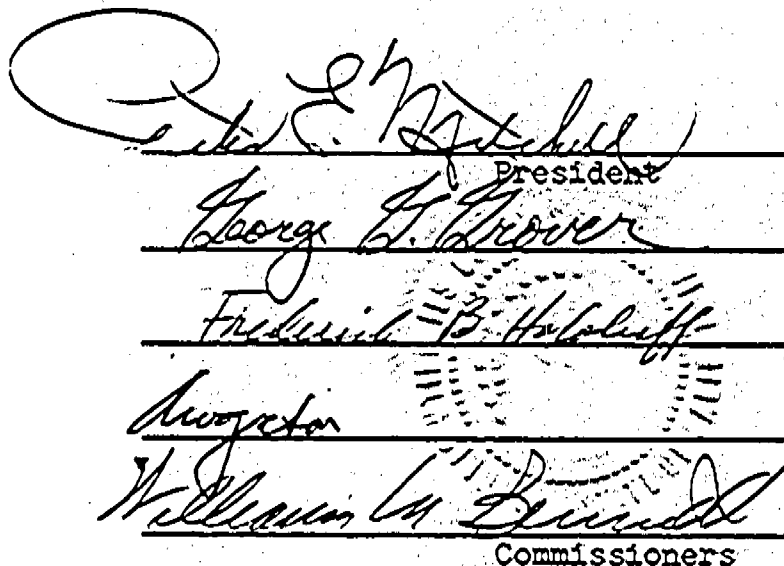 E. Mitchell
President
George G. Grover
Frederick B. Holoboff
William M. Bennett
Commissioners